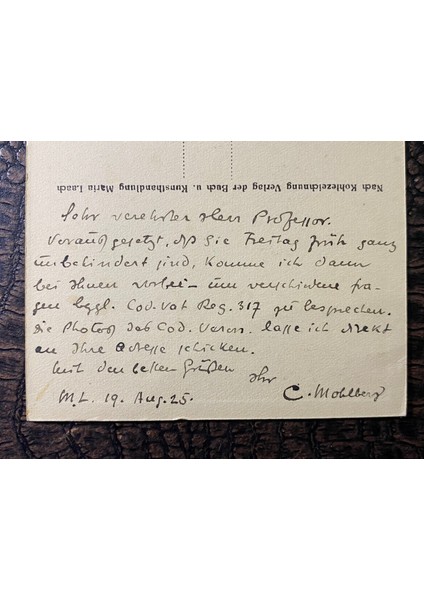 Nach Kohlezeichnung Verlag der Buch u. Kunsthandlung Maria Laach
Sehr verehrter Herr Professor.
Vorausgesetzt, daß Sie Freitag früh ganz
unbehindert sind, komme ich dann
bei Ihnen vorbei – um verschiedene Fra-
gen bzgl. Cod. Vat. Reg. 317 zu besprechen.
Die Photos des Cod. Veron. lasse ich direkt
an Ihre Adresse schicken.
Mit den besten Grüßen
Ihr
M.L. 19. Aug. 25. C. Mohlberg